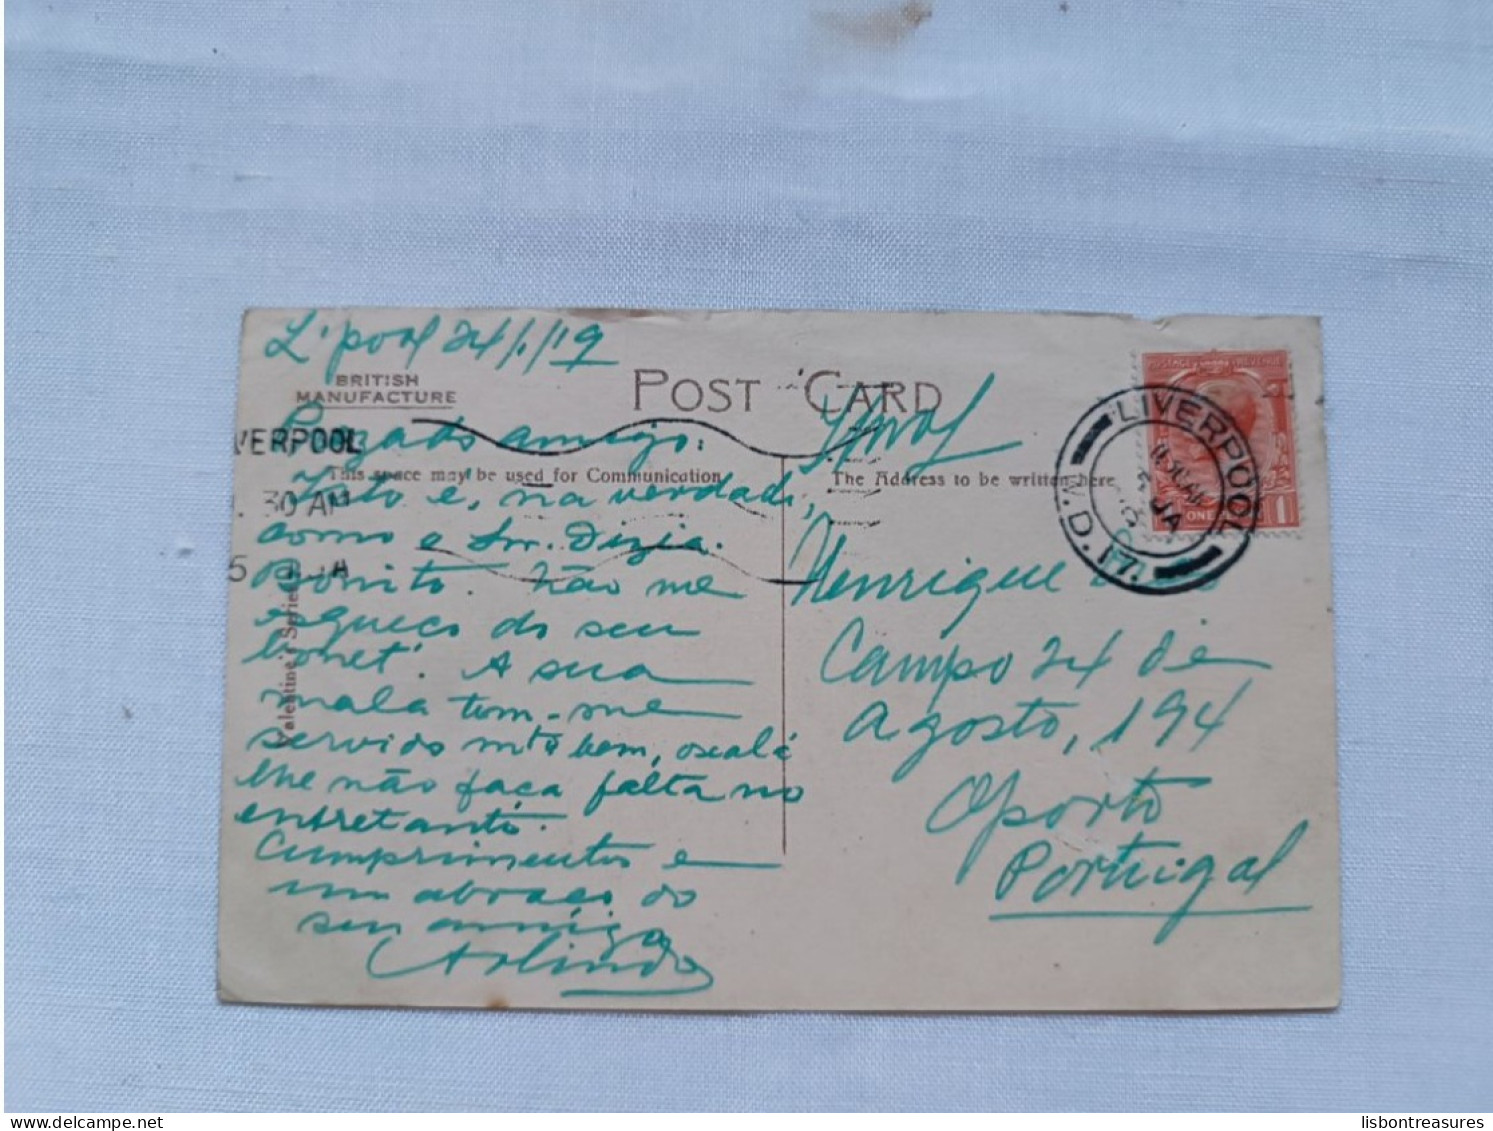 L'pool 24/1/19
BRITISH
MANUFACTURE
POST CARD
VERPOOL
Prezado amigo:
This space may be used for Communication
The Address to be written here
Isto é, na verdade,
30 AM
como o Snr. Dizia.
Bonito. Não me
esqueço do seu
bonet. A sua
mala tem-me
servido mto bem, oxalá
lhe não faça falta no
entretanto.
Cumprimentos e
um abraço do
seu amigo
Arlindo
Valentine's Series
LIVERPOOL
11 30 AM
JA
W.D.17.
ONE
1
Henrique
Campo 24 de
Agosto, 194
Oporto
Portugal
delcampe.net
lisbontreasures